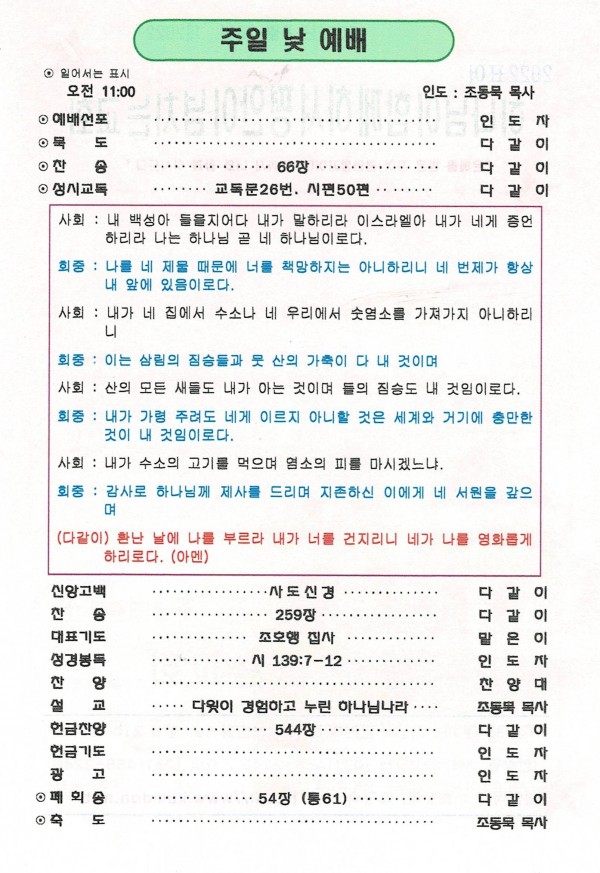 주일 낮 예배
⊙ 일어서는 표시
오전 11:00 인도 : 조동묵 목사
⊙ 예배선포 ········ 인 도 자
⊙ 묵 도 ········ 다 같 이
⊙ 찬 송 ········ 66장 ········ 다 같 이
⊙ 성시교독 ········ 교독문26번. 시편50편 ········ 다 같 이
사회 : 내 백성아 들을지어다 내가 말하리라 이스라엘아 내가 네게 증언
하리라 나는 하나님 곧 네 하나님이로다.
회중 : 나를 네 제물 때문에 너를 책망하지는 아니하리니 네 번제가 항상
내 앞에 있음이로다.
사회 : 내가 네 집에서 수소나 네 우리에서 숫염소를 가져가지 아니하리
니
회중 : 이는 삼림의 짐승들과 뭇 산의 가축이 다 내 것이며
사회 : 산의 모든 새들도 내가 아는 것이며 들의 짐승도 내 것임이로다.
회중 : 내가 가령 주려도 네게 이르지 아니할 것은 세계와 거기에 충만한
것이 내 것임이로다.
사회 : 내가 수소의 고기를 먹으며 염소의 피를 마시겠느냐.
회중 : 감사로 하나님께 제사를 드리며 지존하신 이에게 네 서원을 갚으
며
(다같이) 환난 날에 나를 부르라 내가 너를 건지리니 네가 나를 영화롭게
하리로다. (아멘)
신앙고백 ········ 사도신경 ········ 다 같 이
찬 송 ········ 259장 ········ 다 같 이
대표기도 ········ 조호행 집사 ········ 맡 은 이
성경봉독 ········ 시 139:7-12 ········ 인 도 자
찬 양 ········ 찬 양 대
설 교 ········ 다윗이 경험하고 누린 하나님나라 ···· 조동묵 목사
헌금찬양 ········ 544장 ········ 다 같 이
헌금기도 ········ 인 도 자
광 고 ········ 인 도 자
⊙ 폐 회 송 ········ 54장 (통61) ········ 다 같 이
⊙ 축 도 ········ 조동묵 목사